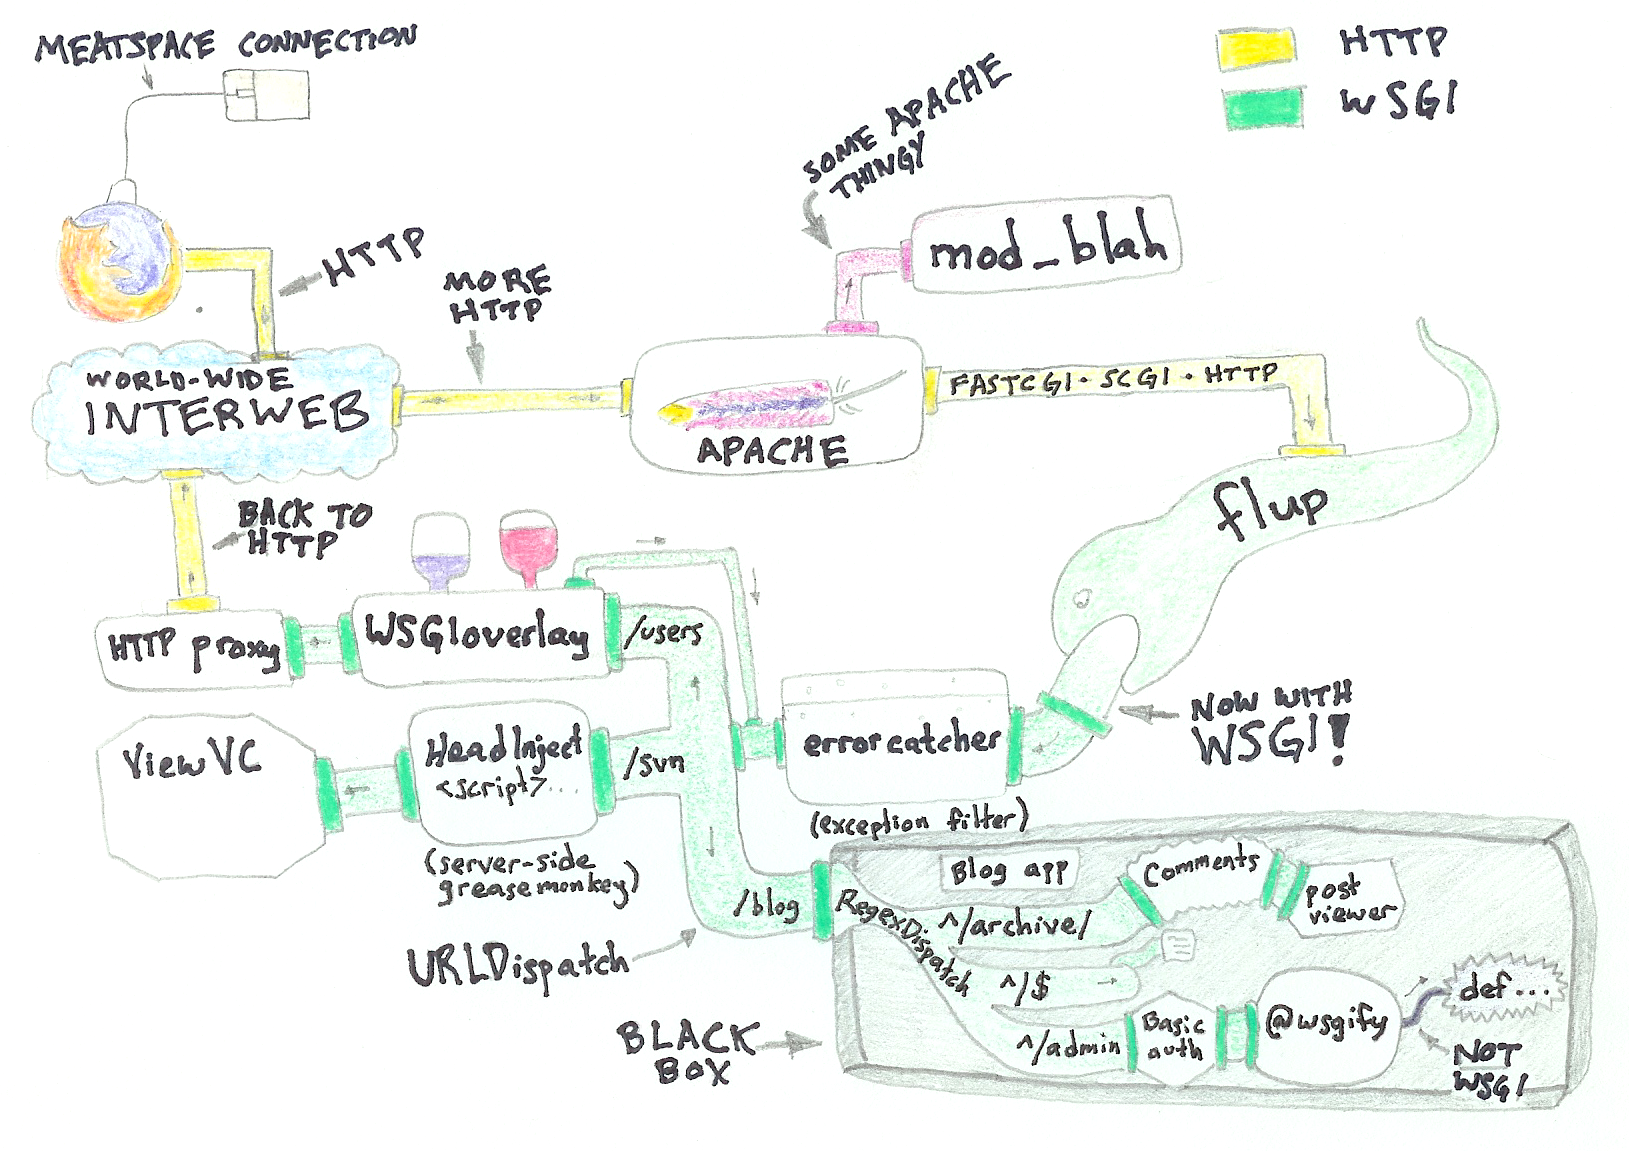 MEATSPACE CONNECTION
HTTP
WSGI
SOME APACHE
THINGY
mod_blah
HTTP
MORE
HTTP
WORLD-WIDE
INTERWEB
APACHE
FASTCGI · SCGI · HTTP
flup
BACK TO
HTTP
HTTP proxy
WSGIoverlay
/users
NOW WITH
WSGI!
errorcatcher
(exception filter)
ViewVC
HeadInject
<script>...
/svn
(server-side
greasemonkey)
/blog
URLDispatch
BLACK
BOX
RegexDispatch
Blog app
^/archive/
Comments
post
viewer
^/$
^/admin
Basic
auth
@wsgify
def...
NOT
WSGI